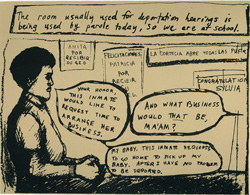 The room usually used for deportation hearings is
being used by parole today, so we are at school.
ANITA
POR
RECIBIR
SU GED
FELICITACIONES
PATRICIA
POR
RECIBIR
LA CORTESIA ABRE TODAS LAS PUERTAS
CONGRATULATIONS
SYLVIA
YOUR HONOR,
THIS INMATE
WOULD LIKE TO
REQUEST TIME TO
ARRANGE HER
BUSINESS.
AND WHAT BUSINESS
WOULD THAT BE,
MA'AM?
MY BABY. THIS INMATE REQUESTS
TO GO HOME TO PICK UP MY
BABY. AFTER I HAVE NO PROBLEM
TO BE DEPORTED.